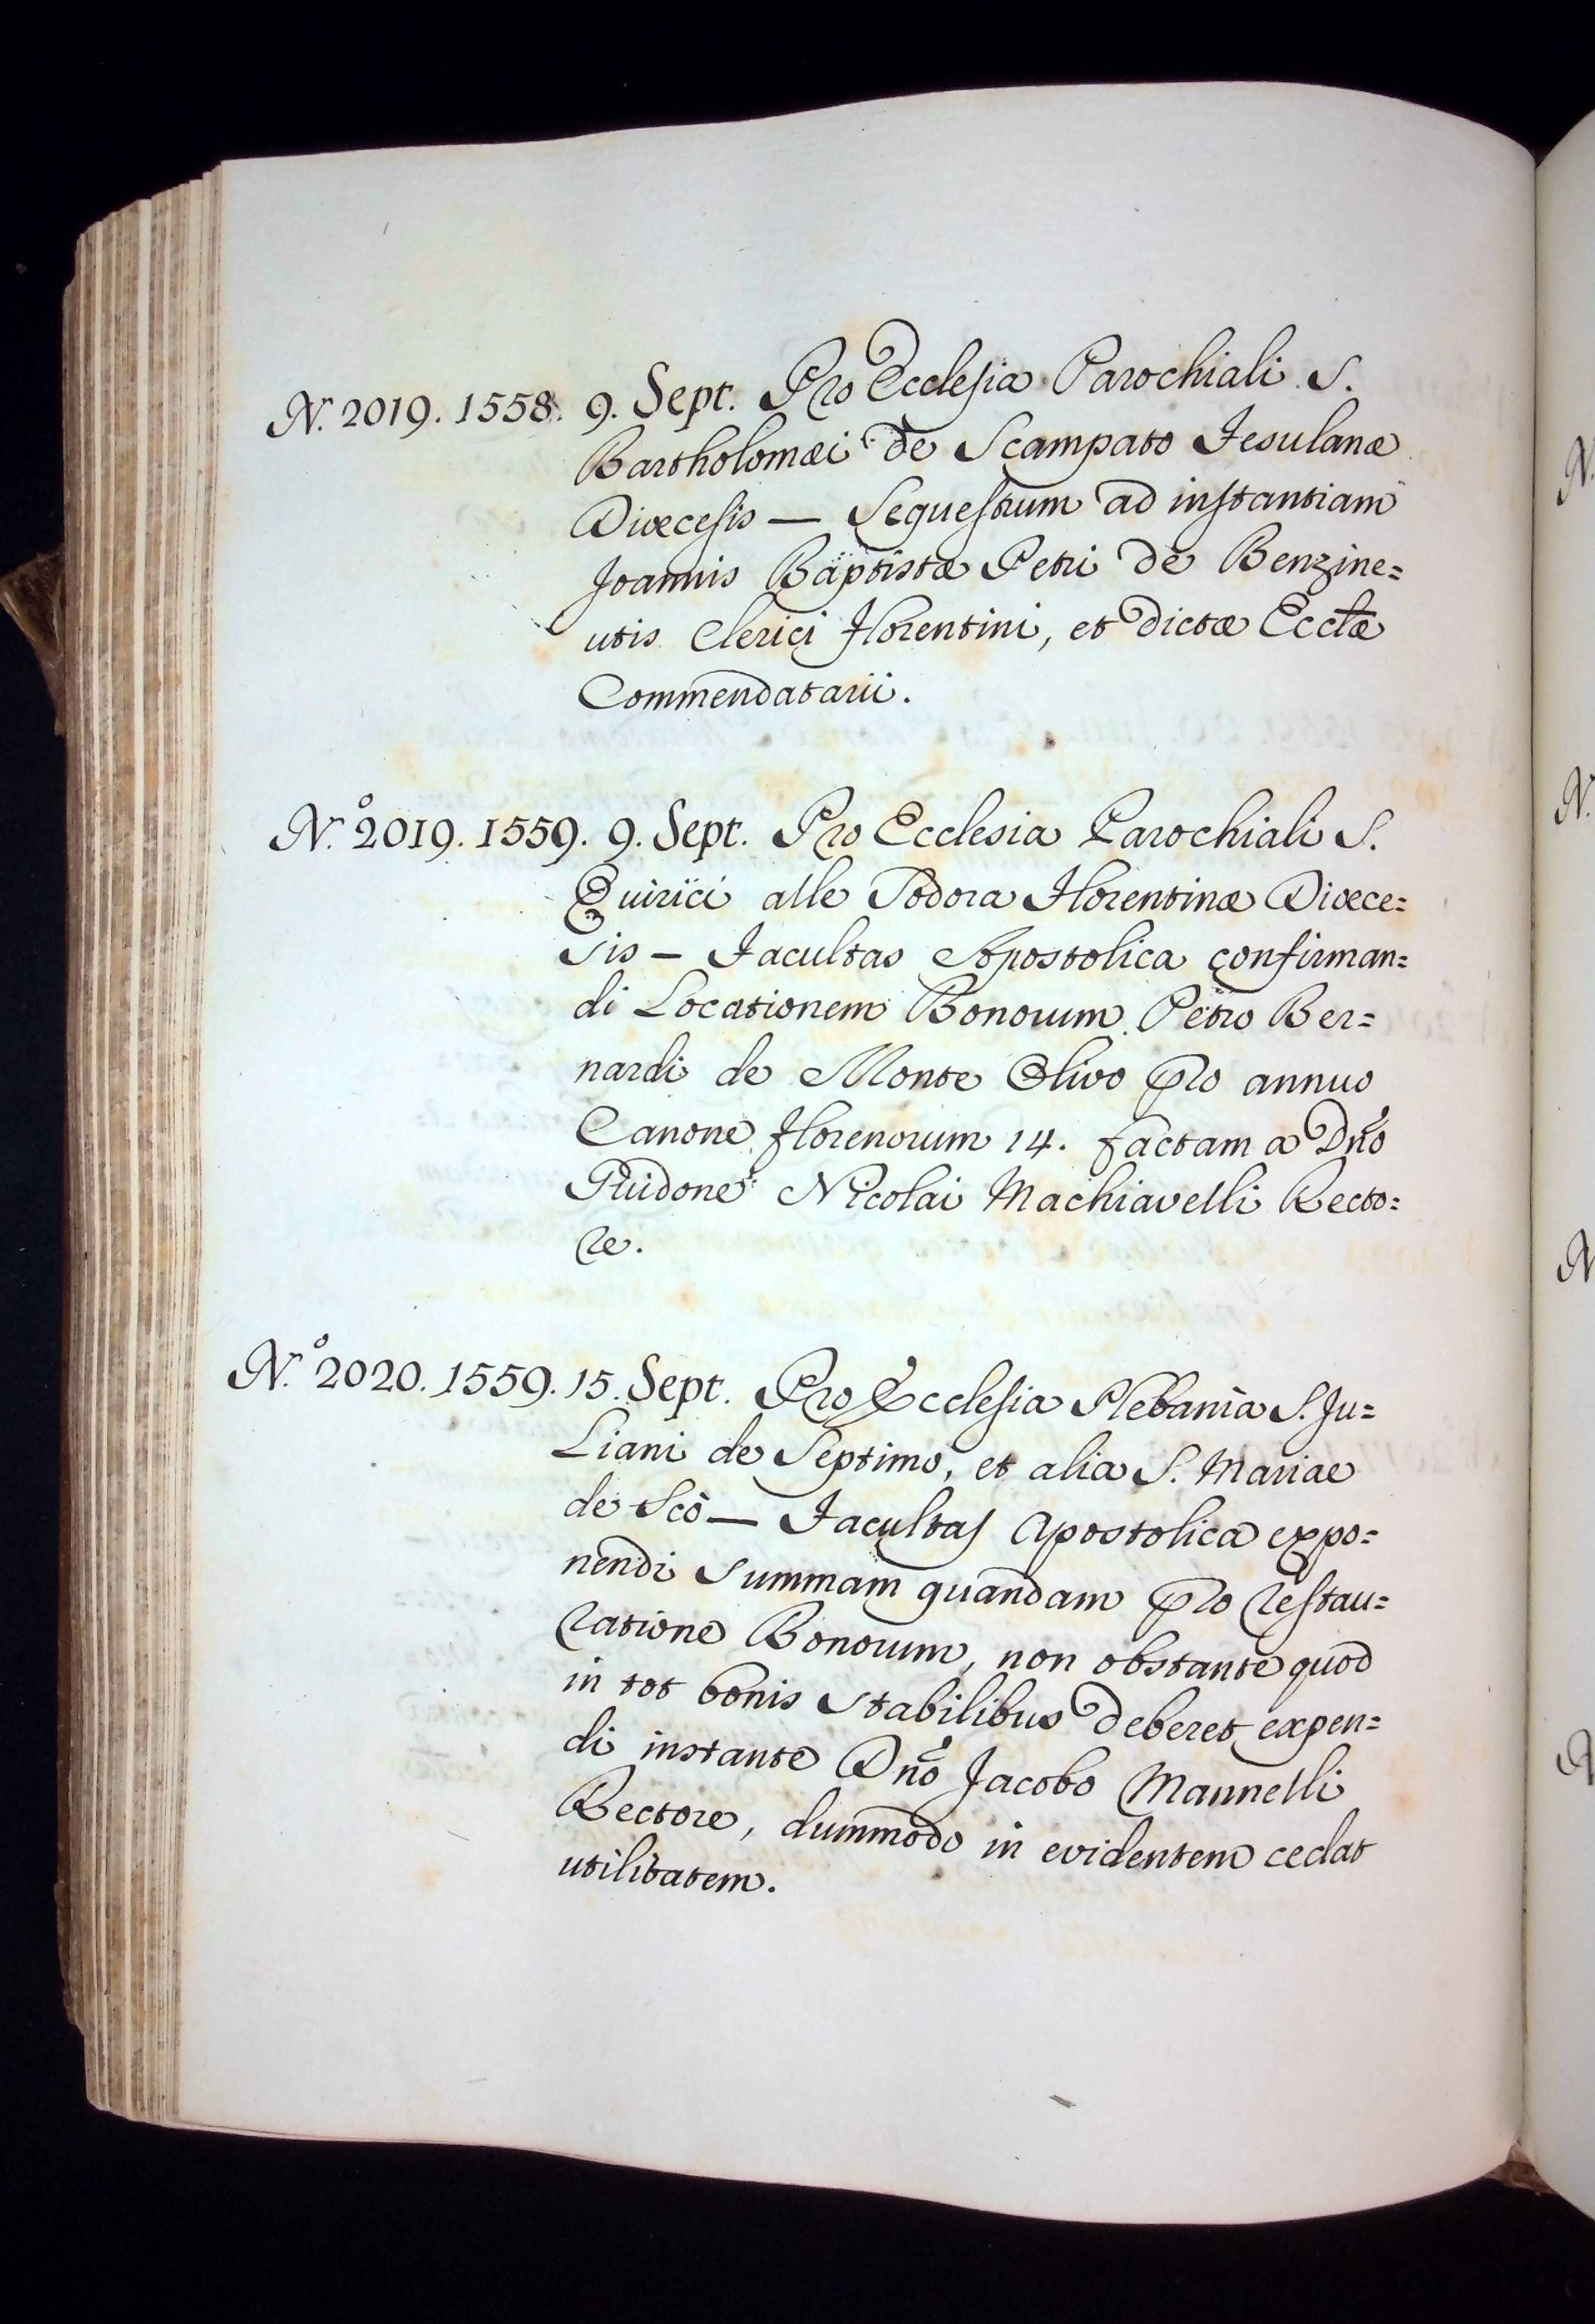 N. 2019. 1558. 9. Sept. Pro Ecclesia Parochiali S.
Bartholomæi de Scampato Fesulanæ
Diœcesis — Sequestrum ad instantiam
Joannis Baptistæ Petri de Benzine=
utis Clerici Florentini, et dictæ Ecctæ
Commendatarii.
N.º 2019. 1559. 9. Sept. Pro Ecclesia Parochiali S.
Quirici alle Podora Florentinæ Diœce=
sis — Facultas Apostolica confirman=
di Locationem Bonorum Petro Ber=
nardi de Monte Olivo pro annuo
Canone Florenorum 14. factam a Dño
Guidone Nicolai Machiavelli Recto=
re.
N.º 2020. 1559. 15. Sept. Pro Ecclesia Plebania S. Ju=
liani de Septimo, et alia S. Mariae
de Scò — Facultas Apostolica expo=
nendi summam quandam pro restau=
ratione Bonorum, non obstante quod
in tot bonis stabilibus deberet expen=
di instante Dño Jacobo Mannelli
Rectore, dummodo in evidentem cedat
utilitatem.
N.
N.
N
N